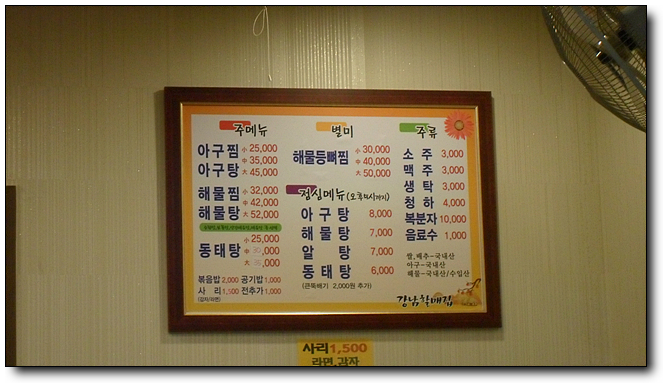 주메뉴
아구찜 小 25,000
아구탕 中 35,000
大 45,000
해물찜 小 32,000
中 42,000
해물탕 大 52,000
동태탕 小 25,000
中 30,000
大 ,000
볶음밥 2,000 공기밥 1,000
사리 1,500 전추가 1,000
(감자/라면)
별미
해물등뼈찜 小 30,000
中 40,000
大 50,000
점심메뉴 (오후 시까지)
아구탕 8,000
해물탕 7,000
알탕 7,000
동태탕 6,000
(큰뚝배기 2,000원 추가)
주류
소주 3,000
맥주 3,000
생탁 3,000
청하 4,000
복분자 10,000
음료수 1,000
쌀,배추-국내산
아구-국내산
해물-국내산/수입산
강남할매집
사리 1,500
라면,감자